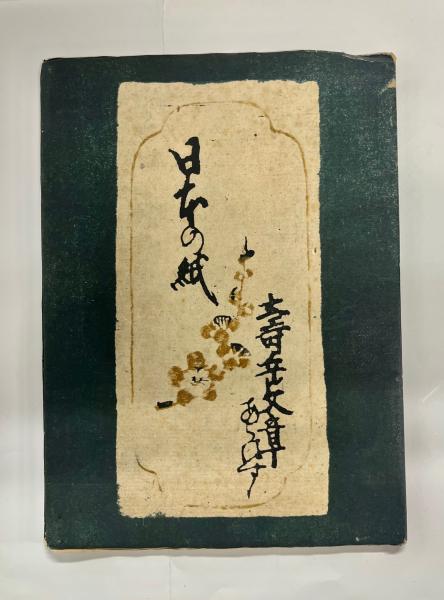 日本の紙
壽岳文章
あらはす